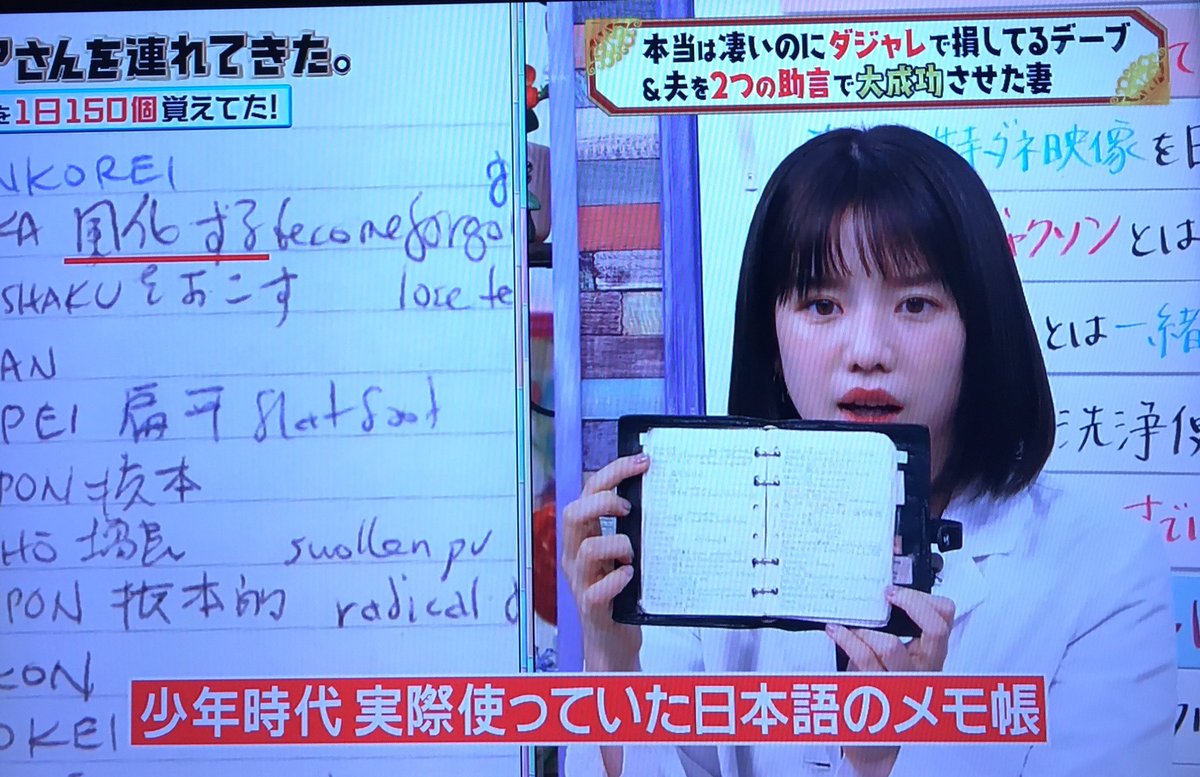 アさんを連れてきた。
を1日150個覚えてた!
本当は凄いのにダジャレで損してるデーブ
&夫を2つの助言で大成功させた妻
NKOREI
KA 風化する become forgo
SHAKUをおこす lose te
AN
PEI 扁平 flat foot
PON 抜本
HŌ swollen pu
PON 抜本的 radical
KON
OKEI
特ダネ映像を日
ャクソンとは
とは一緒
洗浄便
さでに
少年時代 実際使っていた日本語のメモ帳